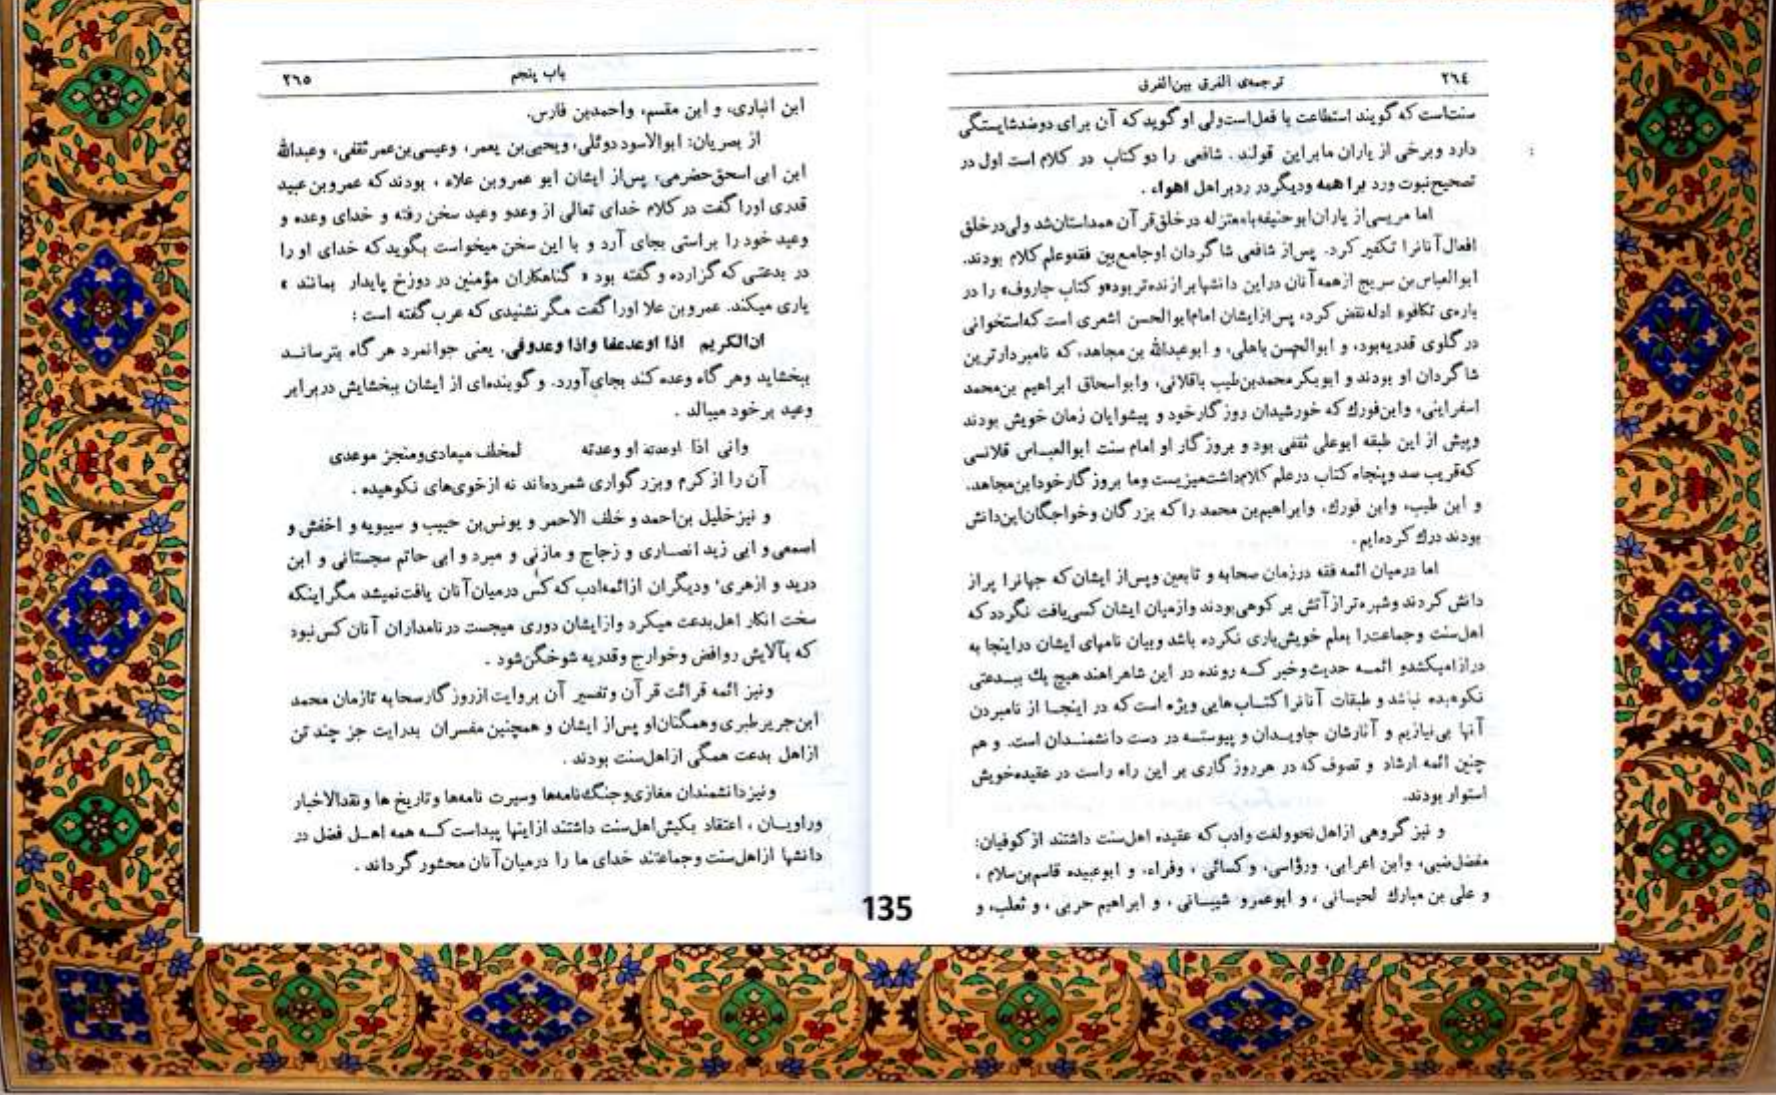 ٢٦٤
ترجمه‌ی الفرق بین‌الفرق
سنت‌است که گویند استطاعت با فعل‌است‌ولی او گوید که آن برای دوضدشایستگی
دارد وبرخی از یاران مابراین قولند. شافعی را دو کتاب در کلام است اول در
تصحیح‌نبوت ورد براهمه ودیگر در ردبر اهل اهواء.
اما مریسی‌از یاران‌ابوحنیفه‌بامعتزله درخلق‌قرآن همداستان‌شد ولی‌درخلق
افعال‌آنانرا تکفیر کرد. پس‌از شافعی شاگردان اوجامع‌بین فقه‌وعلم‌کلام بودند.
ابوالعباس‌بن سریج ازهمه‌آنان دراین دانشها برازنده‌تر بود«و کتاب جاروف» را در
باره‌ی تکافوء ادله‌نقض کرد، پس‌ازایشان امام‌ابوالحسن اشعری است که‌استخوانی
در گلوی قدریه‌بود، و ابوالحسن باهلی، و ابوعبدالله بن‌مجاهد، که نامبردارترین
شاگردان او بودند و ابوبکرمحمدبن‌طیب باقلانی، وابواسحاق ابراهیم بن‌محمد
اسفراینی، وابن‌فورك که خورشیدان روز گارخود و پیشوایان زمان خویش بودند
وپیش از این طبقه ابوعلی ثقفی بود و بروزگار او امام سنت ابوالعبـاس قلانسی
که‌قریب سد وپنجاه کتاب درعلم کلام‌داشت‌میزیست وما بروز گارخودابن‌مجاهد،
و ابن طیب، وابن فورك، وابراهیم‌بن محمد را که بزرگان وخواجگان‌این‌دانش
بودند درك کرده‌ایم.
اما درمیان ائمه فقه درزمان صحابه و تابعین وپس‌از ایشان که جهانرا پراز
دانش کردند وشهره‌تر از آتش بر کوهی‌بودند وازمیان ایشان کسی‌یافت نگردد که
اهل‌سنت وجماعت‌را بعلم خویش‌یاری نکرده باشد وبیان نامهای ایشان دراینجا به
درازامیکشدو ائمـه حدیث‌وخبر کـه رونده در این شاهراهند هیچ یك ببـدعتی
نکوهیده نباشد و طبقات آنانرا کتـاب‌هایی ویژه است که در اینجـا از نامبردن
آنها بی‌نیازیم و آثارشان جاویـدان و پیوستـه در دست دانشمنـدان است. و هم
چنین ائمه ارشاد و تصوف که در هرروزگاری بر این راه راست در عقیده‌خویش
استوار بودند.
و نیز گروهی ازاهل نحوولغت وادب که عقیده اهل‌سنت داشتند از کوفیان:
مفضل‌ضبی، وابن اعرابی، ورؤاسی، وکسائی، وفراء، و ابوعبیده قاسم‌بن‌سلام،
و علی بن مبارك لحیـانی، و ابوعمرو شیبـانی، و ابراهیم حربی، و ثعلب، و
باب پنجم
٢٦٥
ابن انباری، و ابن مقسم، واحمدبن فارس.
از بصریان: ابوالاسود دوئلی، ویحیی‌بن یعمر، وعیسی‌بن‌عمرثقفی، وعبدالله
ابن ابی‌اسحق‌حضرمی، پس‌از ایشان ابو عمروبن علاء، بودند که عمروبن عبید
قدری اورا گفت در کلام خدای تعالی از وعدو وعید سخن رفته و خدای وعده و
وعید خود را براستی بجای آرد و با این سخن میخواست بگوید که خدای او را
در بدعتـی که گزارده و گفته بود « گناهکاران مؤمنین در دوزخ پایدار بمانند »
یاری میکند. عمروبن علا اورا گفت مگر نشنیدی که عرب گفته است:
ان‌الکریم اذا اوعدعفا واذا وعدوفی. یعنی جوانمرد هر گاه بترسانـد
ببخشاید وهر گاه وعده کند بجای‌آورد. و گوینده‌ای از ایشان ببخشایش دربرابر
وعید برخود میبالد.
وانی اذا اوعدته او وعدته لمخلف میعادی‌ومنجز موعدی
آن را از کرم وبزرگواری شمرده‌اند نه ازخوی‌های نکوهیده.
و نیزخلیل بن‌احمد و خلف الاحمر و یونس‌بن حبیب و سیبویه و اخفش و
اصمعی و ابی زید انصـاری و زجاج و مازنی و مبرد و ابی حاتم سجستانی و ابن
درید و ازهری، ودیگران ازائمه‌ادب که کس درمیان‌آنان یافت‌نمیشد مگراینکه
سخت انکار اهل‌بدعت میکرد وازایشان دوری میجست درنامداران آنان کس‌نبود
که بآلایش روافض وخوارج وقدریه شوخگن‌شود.
ونیز ائمه قرائت قرآن وتفسیر آن بروایت ازروز گارسحابه تازمان محمد
ابن‌جریرطبری وهمگنان‌او پس‌از ایشان و همچنین مفسران بدرایت جز چند تن
ازاهل بدعت همگی ازاهل‌سنت بودند.
ونیزدانشمندان مغازی‌وجنگ‌نامه‌ها وسیرت نامه‌ها وتاریخ ها ونقدالاخبار
وراویـان، اعتقاد بکیش‌اهل‌سنت داشتند ازاینها پیداست کـه همه اهـل فضل در
دانشها ازاهل‌سنت وجماعتند خدای ما را درمیان‌آنان محشور گرداند.
135